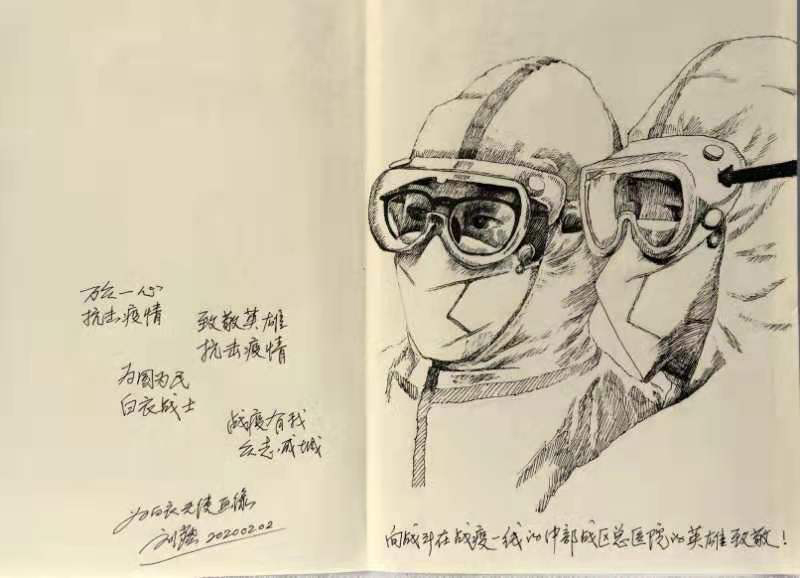 万众一心
抗击疫情
致敬英雄
抗击疫情
为国为民
白衣战士
战疫有我
众志成城
为白衣天使画像
刘 20200202
向战斗在战疫一线的中部战区总医院的英雄致敬！